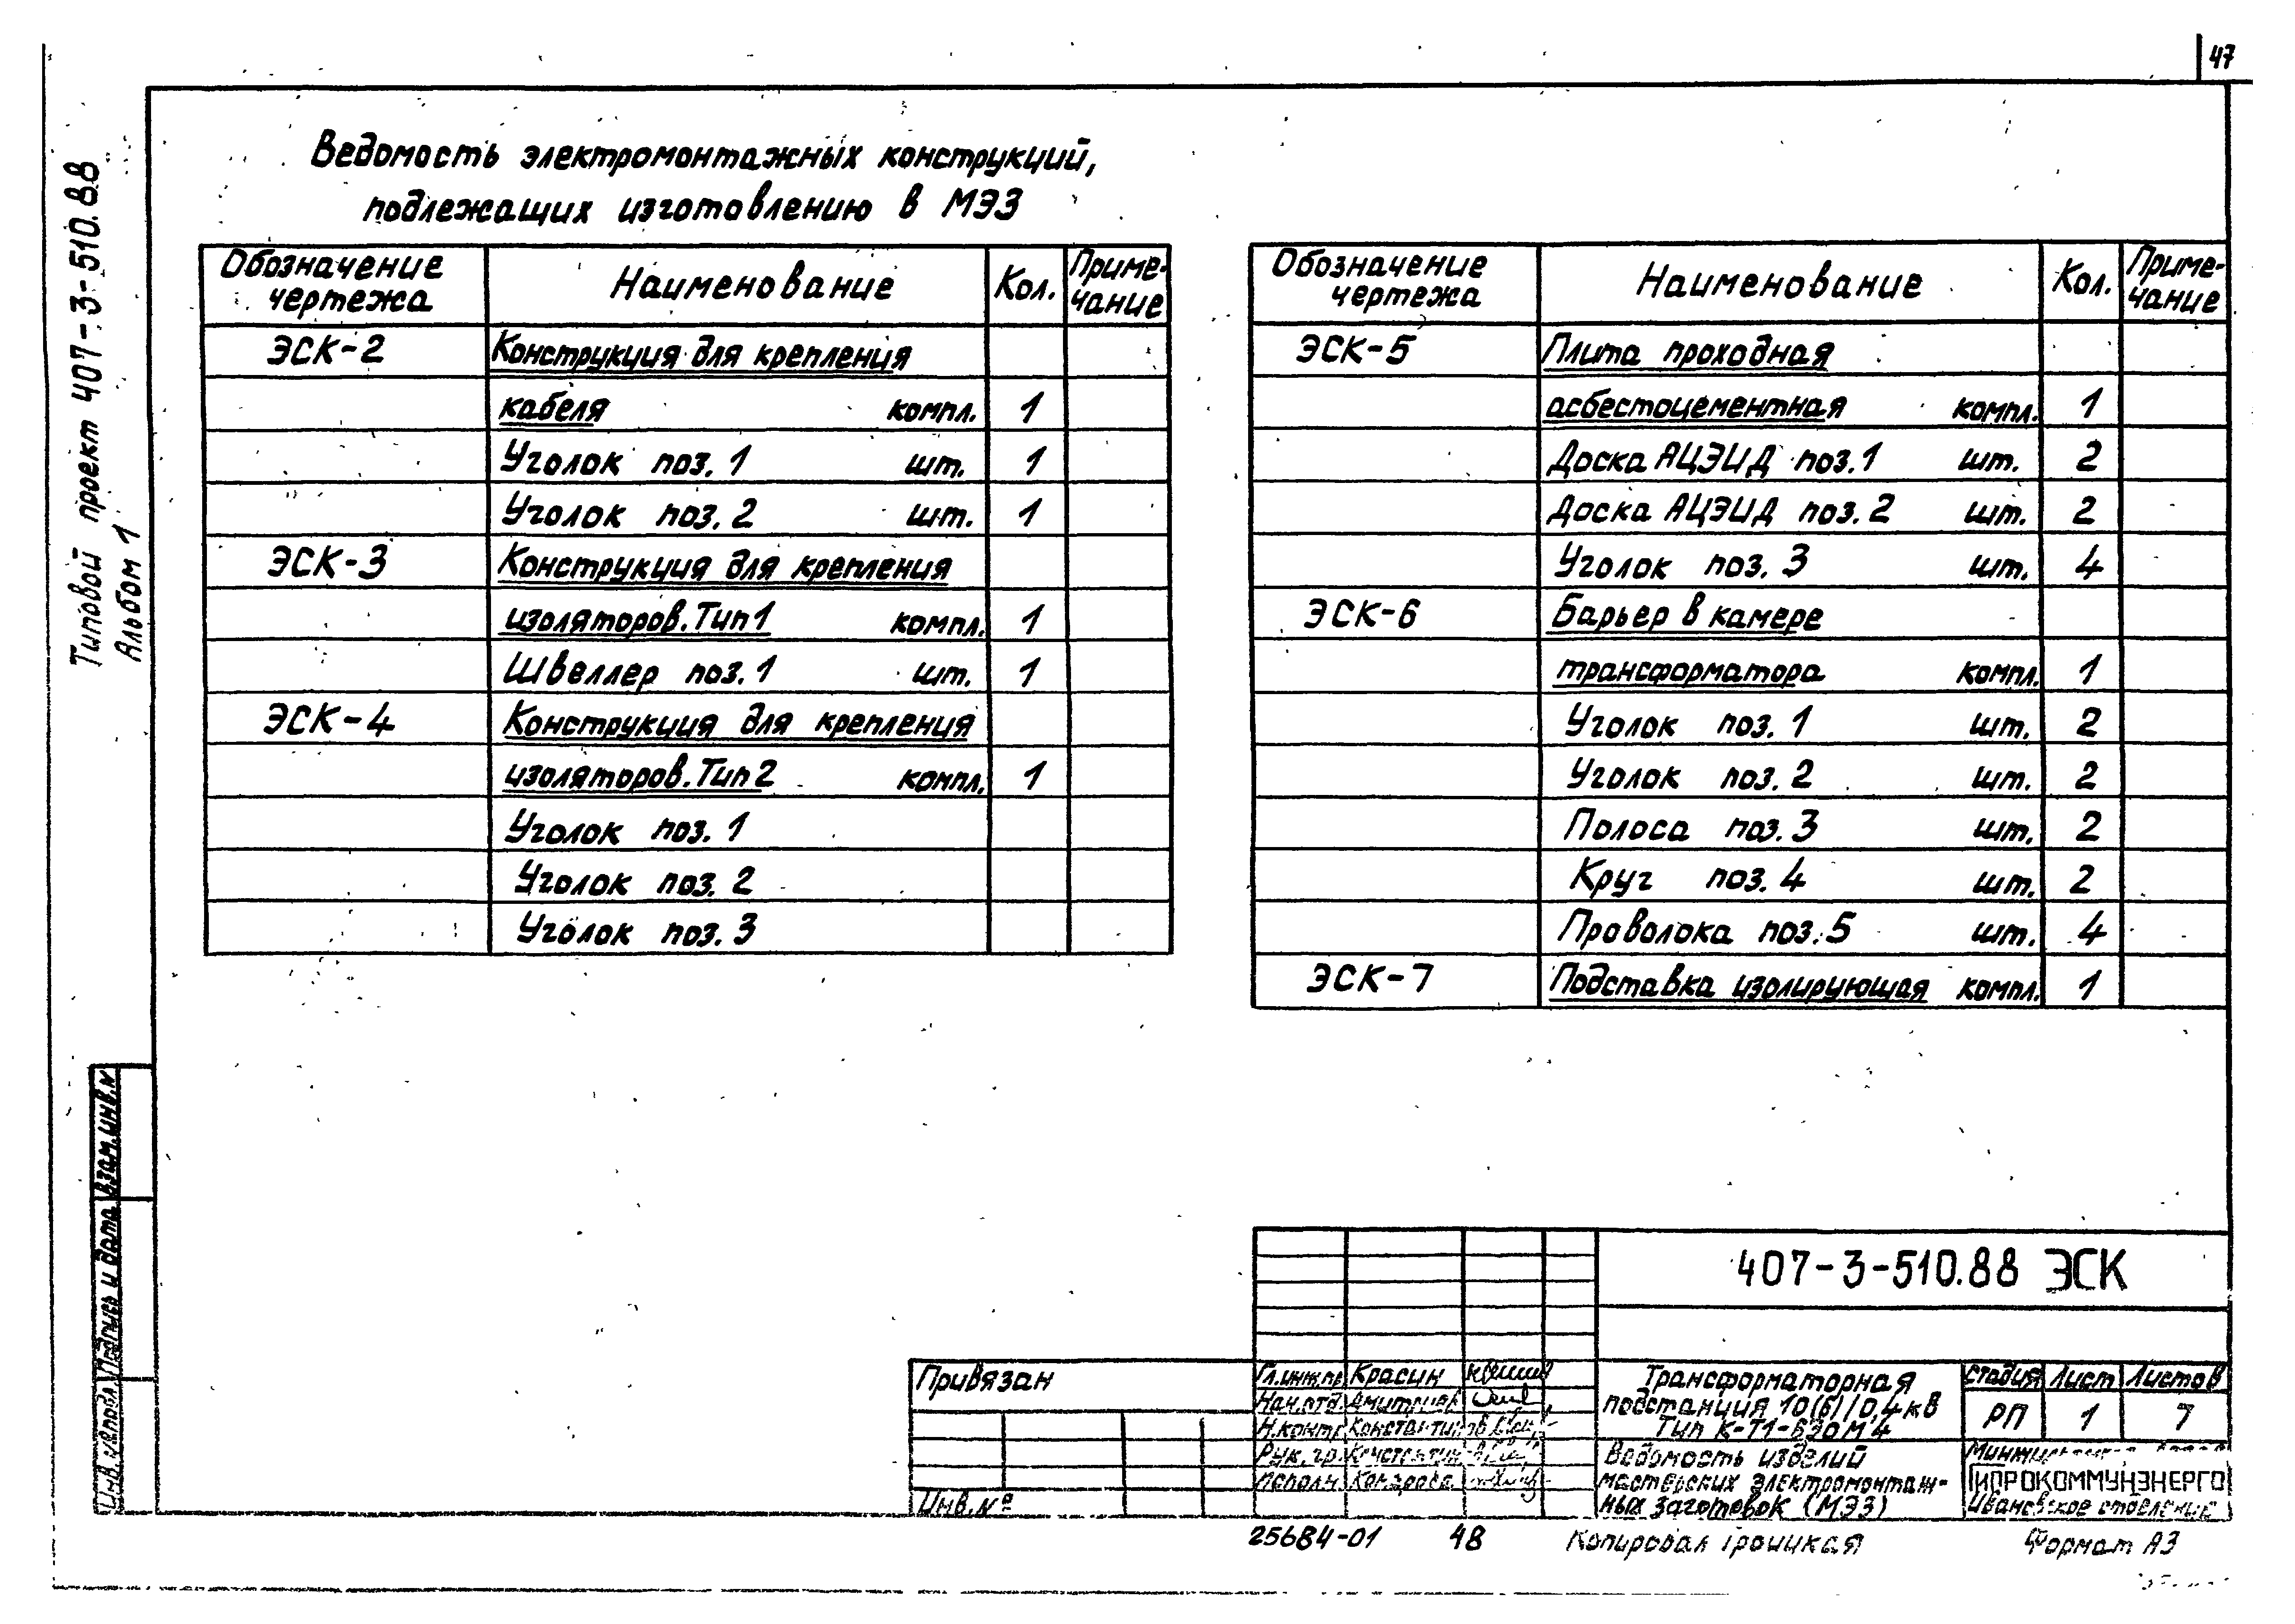 47
Типовой проект 407-3-510.88
Альбом 1
Ведомость электромонтажных конструкций,
подлежащих изготовлению в МЭЗ
Обозначение чертежа Наименование Кол. Приме-чание
ЭСК-2 Конструкция для крепления
кабеля компл. 1
Уголок поз. 1 шт. 1
Уголок поз. 2 шт. 1
ЭСК-3 Конструкция для крепления
изоляторов. Тип 1 компл. 1
Швеллер поз. 1 шт. 1
ЭСК-4 Конструкция для крепления
изоляторов. Тип 2 компл. 1
Уголок поз. 1
Уголок поз. 2
Уголок поз. 3
Обозначение чертежа Наименование Кол. Приме-чание
ЭСК-5 Плита проходная
асбестоцементная компл. 1
Доска АЦЭИД поз. 1 шт. 2
Доска АЦЭИД поз. 2 шт. 2
Уголок поз. 3 шт. 4
ЭСК-6 Барьер в камере
трансформатора компл. 1
Уголок поз. 1 шт. 2
Уголок поз. 2 шт. 2
Полоса поз. 3 шт. 2
Круг поз. 4 шт. 2
Проволока поз. 5 шт. 4
ЭСК-7 Подставка изолирующая компл. 1
Взам. инв. №
Подпись и дата
Инв. № подл.
407-3-510.88 ЭСК
Привязан
Инв. №
Гл. инж. пр. Красин
Нач. отд. Дмитриев
Н. контр. Константинов
Рук. гр.
Исполн.
Трансформаторная
подстанция 10(6)/0,4 кВ
Тип К-Т1-630 М4
Стадия Лист Листов
РП 1 7
Ведомость изделий
мастерских электромонтаж-
ных заготовок (МЭЗ)
ГИПРОКОММУНЭНЕРГО
Ивановское отделение
25684-01 48 Копировал Троицкая Формат А3